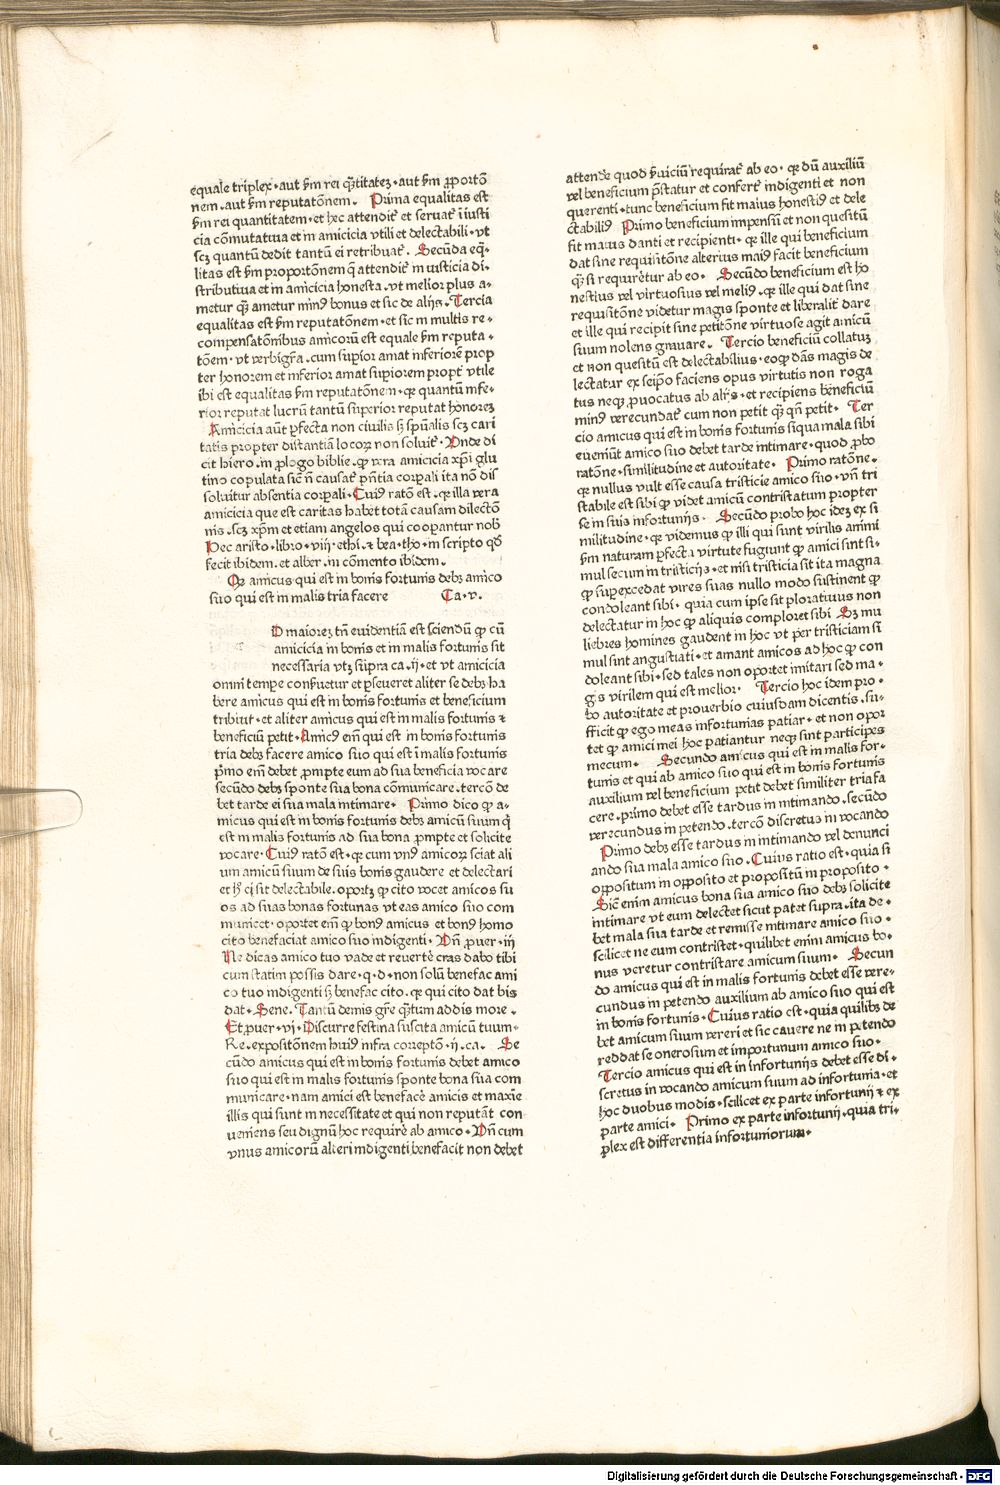 equale triplex · aut ẜm rei q̄ntitateꝫ · aut ẜm ꝓportō
nem · aut ẜm reputatōnem · Prima equalitas est
ẜm rei quantitatem · et hec attendit᷑ et seruat᷑ ī iusti
cia cōmutatiua et in amicicia vtili et delectabili · vt
scꝫ quantū dedit tantū ei retribuat᷑ · Secūda eq̄
litas est ẜm proportōnem q̄ attendit᷑ in iusticia di-
stributiua et in amicicia honesta · vt melior plus a-
metur q̄ꝫ ametur minꝰ bonus et sic de alijs · Tercia
equalitas est ẜm reputatōnem · et sic in multis re-
compensatōnibus amicorū est equale ẜm reputa-
tōem · vt verbigr̄a · cum supior amat inferiorē prop
ter honorem et inferior amat supiorem propt᷑ vtile
ibi est equalitas ẜm reputatōnem · qꝛ quantū infe-
rior reputat lucrū tantū superior reputat honoreꝫ
Amicicia aūt ꝑfecta non ciuilis sꝫ spūalis scꝫ cari
tatis propter distantiā locoꝝ non soluit᷑ · Vnde di
cit hiero · in ꝓlogo biblie · ꝙ vera amicicia xp̄i glu
tino copulata sicē n̄ causat᷑ pn̄tia corꝑali ita nō dis
soluitur absentia corꝑali · Cuiꝰ ratō est · qꝛ illa vera
amicicia que est caritas habet totā causam dilectō
nis · scꝫ xp̄m et etiam angelos qui coopantur nob̄
Hec aristo · libro · viij · ethi · ⁊ bea · tho · in scripto qd̄
fecit ibidem · et alber · in cōmento ibidem ·
Qꝛ amicus qui est in bonis fortunis debꝫ amico
suo qui est in malis tria facere Ca · v ·
D maioreꝫ tn̄ euidentiā est sciendū ꝙ cū
amicicia in bonis et in malis fortunis sit
necessaria vtꝫ supra ca · ij · et vt amicicia
omni tempe conseruetur et ꝑseueret aliter se debꝫ ha
bere amicus qui est in bonis fortunis et beneficium
tribuit · et aliter amicus qui est in malis fortunis ⁊
beneficiū petit · Amicꝰ em̄ qui est in bonis fortunis
tria debꝫ facere amico suo qui est ī malis fortunis
pͥmo em̄ debet ꝓmpte eum ad sua beneficia vocare
secūdo debꝫ sponte sua bona cōmunicare · tercō de
bet tarde ei sua mala intimare · Primo dico ꝙ a-
micus qui est in bonis fortunis debꝫ amicū suum q̄
est in malis fortunis ad sua bona ꝓmpte et solicite
vocare · Cuiꝰ ratō est · qꝛ cum vnꝰ amicoꝝ sciat ali
um amicū suum de suis bonis gaudere et delectari
et hꝰ ei sit delectabile · oportꝫ ꝙ cito vocet amicos su
os ad suas bonas fortunas vt eas amico suo com
municet · oportet em̄ ꝙ bonꝰ amicus et bonꝰ homo
cito benefaciat amico suo indigenti · Vn̄ ꝓuer · iij
Ne dicas amico tuo vade et reuerte cras dabo tibi
cum statim possis dare · q · d · non solū benefac ami
co tuo indigenti sꝫ benefac cito · qꝛ qui cito dat bis
dat · Sene · Tantū demis gr̄e q̄ntum addis more ·
Et ꝓuer · vi · Discurre festina suscita amicū tuum ·
Re · expositōnem huiꝰ infra correptōn · ij · ca · Se
cūdo amicus qui est in bonis fortunis debet amico
suo qui est in malis fortunis sponte bona sua com
municare · nam amici est benefacē amicis et maxie
illis qui sunt in necessitate et qui non reputāt con
ueniens seu dignū hoc requirē ab amico · Vn̄ cum
vnus amicorū alteri indigenti benefacit non debet
attende quod ẜuiciū requirat᷑ ab eo · qꝛ dū auxiliū
vel beneficium p̄statur et confert᷑ indigenti et non
querenti · tunc beneficium fit maius honestiꝰ et dele
ctabiliꝰ Primo beneficium impensū et non quesitū
fit maius danti et recipienti · qꝛ ille qui beneficium
dat sine requisitōne alterius maiꝰ facit beneficium
q̄ꝫ si requiretur ab eo · Secūdo beneficium est ho
nestius vel virtuosius vel meliꝰ · qꝛ ille qui dat sine
requisitōne videtur magis sponte et liberalit᷑ dare
et ille qui recipit sine petitōne virtuose agit amicū
suum nolens grauare · Tercio beneficiū collatuꝫ
et non quesitū est delectabilius · eoꝙ dās magis de
lectatur ex seipō faciens opus virtutis non roga
tus neqꝫ ꝓuocatus ab alijs · et recipiens beneficiū
minꝰ verecundat᷑ cum non petit q̄ꝫ qn̄ petit · Ter
cio amicus qui est in bonis fortunis siqua mala sibi
eueniūt amico suo debet tarde intimare · quod ꝓbo
ratōne · similitudine et autoritate · Primo ratōne ·
qꝛ nullus vult esse causa tristicie amico suo · vn̄ tri
stabile est sibi ꝙ videt amicū contristatum propter
se in suis infortunijs · Secūdo probo hoc ideꝫ ex si
militudine · qꝛ videmus ꝙ illi qui sunt virilis animi
ẜm naturam ꝑfecta virtute fugiunt ꝙ amici sint si-
mul secum in tristicijs · et nisi tristicia sit ita magna
ꝙ supexcedat vires suas nullo modo sustinent ꝙ
condoleant sibi · quia cum ipse sit ploratiuus non
delectatur in hoc ꝙ aliquis comploret sibi Sꝫ mu
liebres homines gaudent in hoc vt per tristiciam si
mul sint angustiati · et amant amicos ad hoc ꝙ con
doleant sibi · sed tales non oportet imitari sed ma-
gis virilem qui est melior · Tercio hoc idem pro-
bo autoritate et prouerbio cuiusdam dicentis · su-
fficit ꝙ ego meas infortunias patiar · et non opor
tet ꝙ amici mei hoc patiantur neqꝫ sint participes
mecum · Secundo amicus qui est in malis for-
tunis et qui ab amico suo qui est in bonis fortunis
auxilium vel beneficium petit debet similiter tria fa
cere · primo debet esse tardus in intimando · secūdo
verecundus in petendo · tercō discretus in vocando
Primo debꝫ esse tardus in intimando vel denunci
ando sua mala amico suo · Cuius ratio est · quia si
oppositum in opposito et propositū in proposito ·
Sicē enim amicus bona sua amico suo debꝫ solicite
intimare vt eum delectet sicut patet supra · ita de-
bet mala sua tarde et remisse intimare amico suo ·
scilicet ne eum contristet · quilibet enim amicus bo-
nus veretur contristare amicum suum · Secun
do amicus qui est in malis fortunis debet esse vere-
cundus in petendo auxilium ab amico suo qui est
in bonis fortunis · Cuius ratio est · quia quilibꝫ de
bet amicum suum vereri et sic cauere ne in petendo
reddat se onerosum et importunum amico suo ·
Tercio amicus qui est in infortunijs debet esse di-
scretus in vocando amicum suum ad infortunia · et
hoc duobus modis · scilicet ex parte infortunij ⁊ ex
parte amici · Primo ex parte infortunij · quia tri-
plex est differentia infortuniorum ·
Digitalisierung gefördert durch die Deutsche Forschungsgemeinschaft - DFG